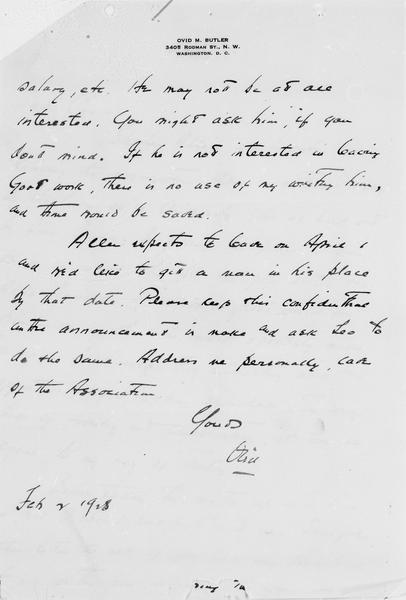 OVID M. BUTLER
3408 RODMAN ST., N. W.
WASHINGTON, D. C.
salary, etc. He may not be at all
interested. You might ask him, if you
don't mind. If he is not interested in leaving
Govt work, there is no use of my writing him,
and time would be saved.
Allen expects to leave on April 1
and we'd like to get a man in his place
by that date. Please keep this confidential
until announcement is made and ask Leo to
do the same. Address me personally, care
of the Association
Yours
Ovid
Feb 2 1928